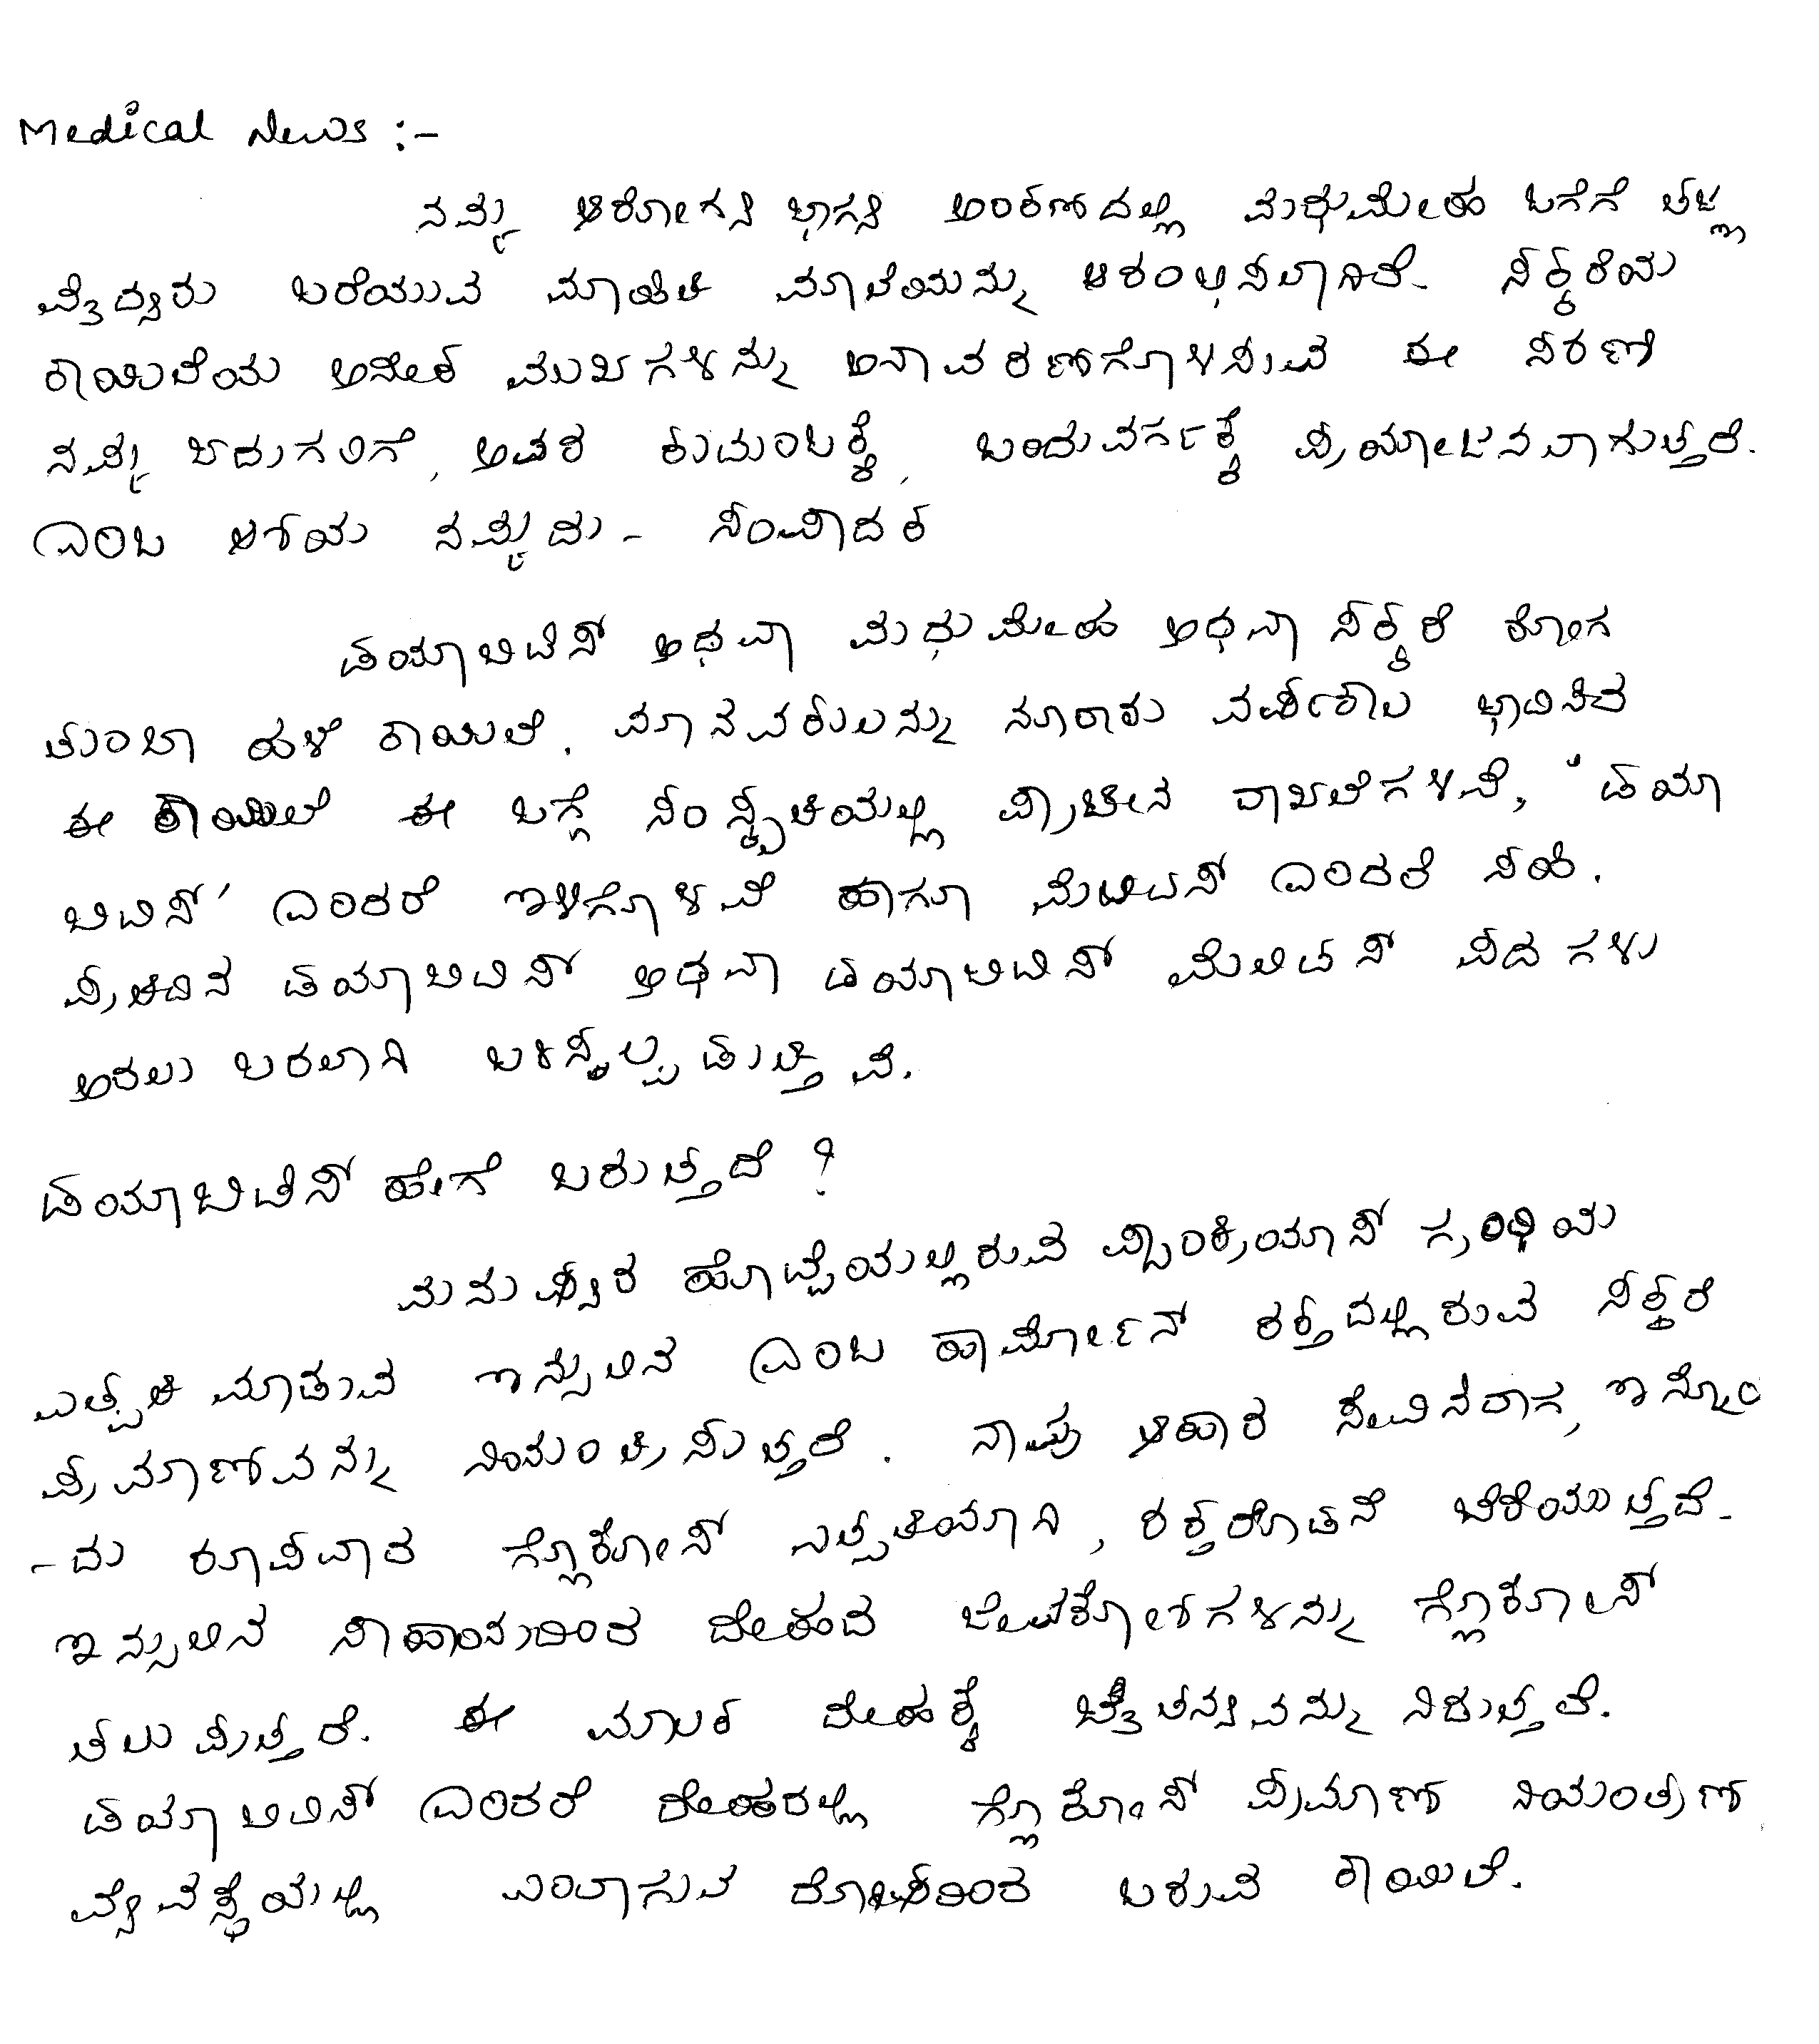 Medical News :-
ನಮ್ಮ ಆರೋಗ್ಯ ಭಾಗ್ಯ ಅಂಕಣದಲ್ಲಿ ಮಧುಮೇಹ ಬಗೆಗೆ ತಜ್ಞ
ವೈದ್ಯರು ಬರೆಯುವ ಮಾಹಿತಿ ಮಾಲೆಯನ್ನು ಆರಂಭಿಸಲಾಗಿದೆ. ಸಕ್ಕರೆಯ
ಕಾಯಿಲೆಯ ಅನೇಕ ಮುಖಗಳನ್ನು ಅನಾವರಣಗೊಳಿಸುವ ಈ ಸರಣಿ
ನಮ್ಮ ಓದುಗರಿಗೆ, ಅವರ ಕುಟುಂಬಕ್ಕೆ, ಬಂಧುವರ್ಗಕ್ಕೆ ಪ್ರಯೋಜನವಾಗುತ್ತದೆ.
ಎಂಬ ಆಶಯ ನಮ್ಮದು - ಸಂಪಾದಕ
ಡಯಾಬಿಟಿಸ್ ಅಥವಾ ಮಧುಮೇಹ ಅಥವಾ ಸಕ್ಕರೆ ರೋಗ
ತುಂಬಾ ಹಳೆ ಕಾಯಿಲೆ. ಮಾನವಕುಲನ್ನು ನೂರಾರು ವರ್ಷಕಾಲ ಭಾದಿಸಿದ
ಈ ಕಾಯಿಲೆ ಈ ಬಗ್ಗೆ ಸಂಸ್ಕೃತಿಯಲ್ಲಿ ಪ್ರಾಚೀನ ದಾಖಲೆಗಳಿವೆ, 'ಡಯಾ
ಬಿಟಿಸ್' ಎಂದರೆ ಇಳಿಗೊಳವೆ ಹಾಗೂ ಮೆಲಿಟಸ್ ಎಂದರೆ ಸಿಹಿ.
ಪ್ರತಿದಿನ ಡಯಾಬಿಟಿಸ್ ಅಥವಾ ಡಯಾಬಿಟಿಸ್ ಮೆಲಿಟಸ್ ಪದಗಳು
ಅದಲು ಬದಲಾಗಿ ಬಳಸಲ್ಪಡುತ್ತವೆ.
ಡಯಾಬಿಟಿಸ್ ಹೇಗೆ ಬರುತ್ತದೆ ?
ಮನುಷ್ಯರ ಹೊಟ್ಟೆಯಲ್ಲಿರುವ ಪ್ಯಾಂಕ್ರಿಯಾಸ್ ಗ್ರಂಥಿಯ
ಎತ್ಪತಿ ಮಾಡುವ ಇನ್ಸುಲಿನ ಎಂಬ ಹಾರ್ಮೋನ್ ರಕ್ತದಲ್ಲಿರುವ ಸಕ್ಕರೆ
ಪ್ರಮಾಣವನ್ನು ನಿಯಂತ್ರಿಸುತ್ತದೆ. ನಾವು ಆಹಾರ ಸೇವಿಸಿದಾಗ, ಇನ್ನೊಂ
-ದು ರೂಪವಾದ ಗ್ಲೂಕೋಸ್ ಎತ್ಪತಿಯಾಗಿ, ರಕ್ತದೊಡನೆ ಬೆರೆಯುತ್ತವೆ.
ಇನ್ಸುಲಿನ ಸಾಹಾಯದಿಂದ ದೇಹದ ಜೀವಕೋಶಗಳನ್ನು ಗ್ಲೂಕೋಸ್
ತಲುಪುತ್ತದೆ. ಈ ಮೂಲಕ ದೇಹಕ್ಕೆ ಚೈತನ್ಯವನ್ನು ನಿಡುತ್ತದೆ.
ಡಯಾಬಿಟಿಸ್ ಎಂದರೆ ದೇಹದಲ್ಲಿ ಗ್ಲೂಕೋಸ್ ಪ್ರಮಾಣ ನಿಯಂತ್ರಣ
ವ್ಯೆವಸ್ಥೆಯಲ್ಲಿ ಎಂಟಾಗುವ ದೋಷದಿಂದ ಬರುವ ಕಾಯಿಲೆ.